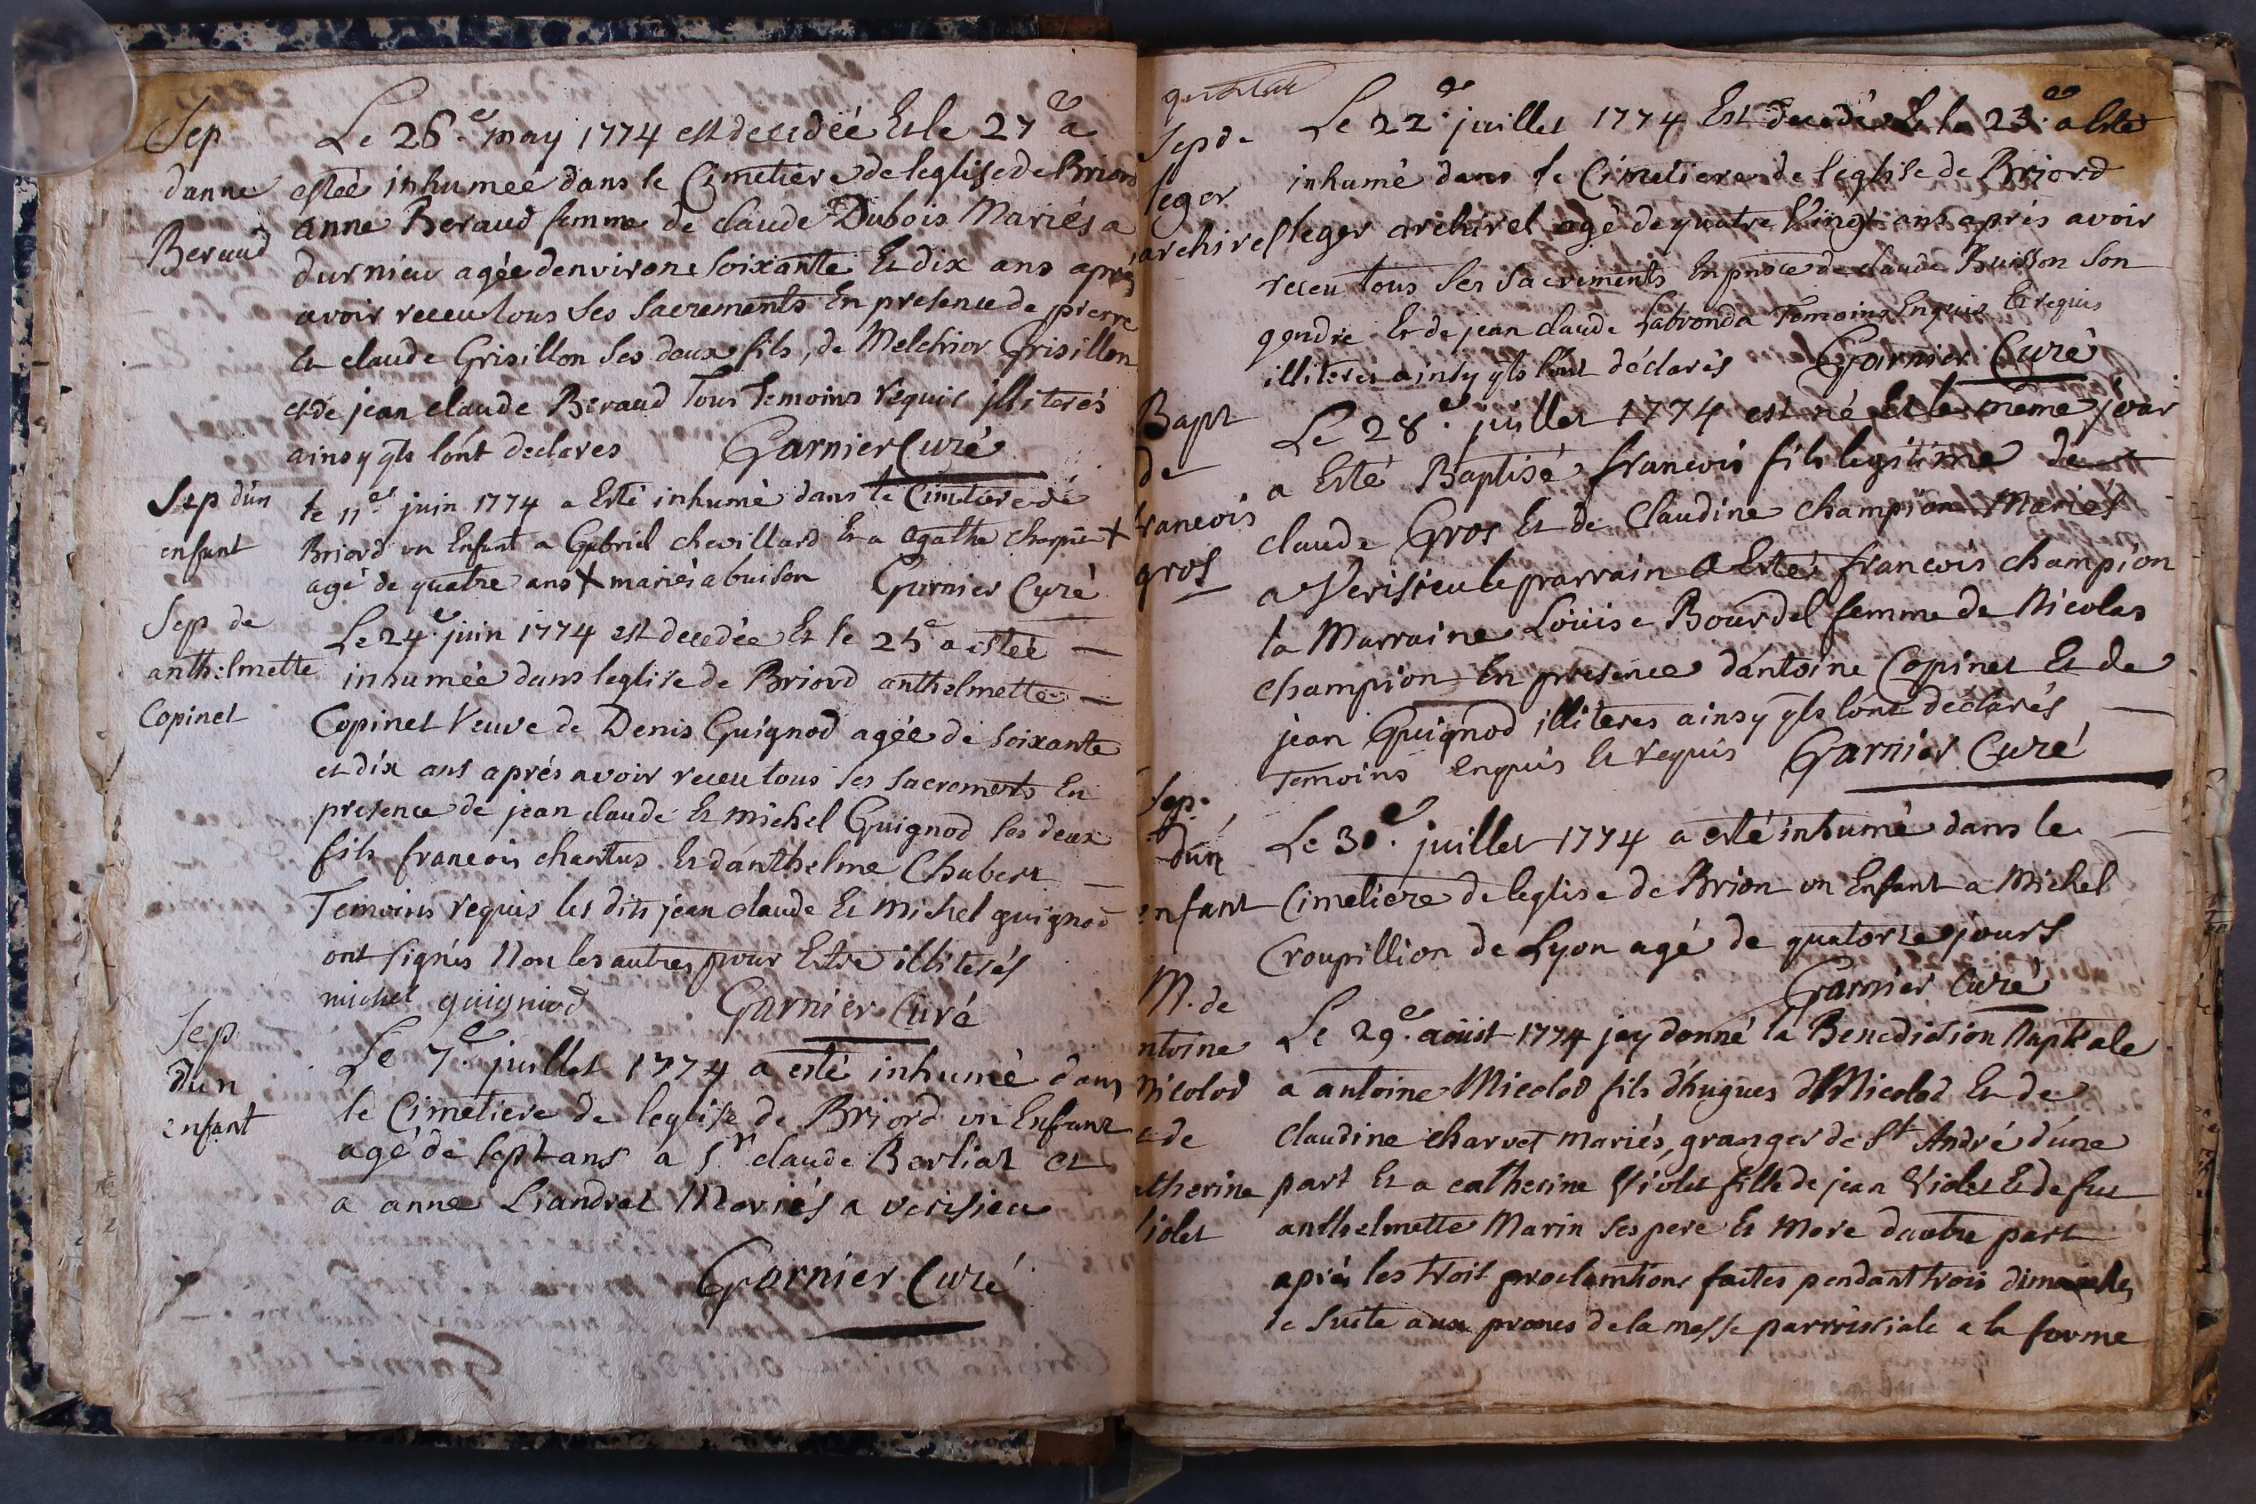 Sep
danne
Beraud
Le 26.e may 1774 est decedée Et le 27e a
estée inhumée dans le Cimetiere de leglise de Briord
anne Beraud femme de claude Dubois Mariés a
durnieu agée denvirons soixante Et dix ans aprés
avoir receu tous ses sacrements En presence de pierre
Et claude Grisillon ses deux fils, de Melchior Grisillon
et de jean claude Beraud Tous Temoins requis illiterés
ainsy qls lont declares Garnier Curé
Sep dun
enfant
le 11e juin 1774 a Esté inhumé dans le Cimetiere de
Briord un Enfant a Gabriel chevillard Et a agathe +
agé de quatre ans + mariés a buison Garnier Curé
Sep de
anthelmette
Copinet
Le 24.e juin 1774 est decedée Et le 25e a estée
inhumée dans leglise de Briord anthelmette
Copinet Veuve de Denis Guignod agée de soixante
et dix ans aprés avoir receu tous ses sacrements En
presence de jean claude Et michel Guignod ses deux
fils francois chentus Et danthelme Chubert
Temoins requis les dits jean claude Et michel guignod
ont signés Non les autres pour Estre illiterés
michel guigniod Garnier Curé
Sep
Dun
enfant
Le 7.e juillet 1774 a esté inhumé dans
le Cimetiere de leglise de Briord un Enfant
agé de sept ans a Sr claude Berliat et
a anne Liandrat Mariés a verisieu
Garnier Curé
Sep de
leger
archirel
Le 22.e juillet 1774 Est decedé Et le 23.e a Esté
inhumé dans le Cimetiere de leglise de Briord
leger archirel agé de quatre Vingt ans aprés avoir
receu tous ses sacrements En pnce de claude Buisson son
gendre Et de jean claude Labronda Temoins Enquis Et requis
illiteres ainsy qls lont déclarés Garnier Curé
Bapt
de
francois
gros
Le 28.e juillet 1774 est né Et le même jour
a Esté Baptisé francois fils legitime de
claude Gros Et de Claudine champion Mariés
a Verisieu le parrain a Esté francois champion
la Marraine Loüise Bourdel femme de Nicolas
champion En presence dantoine Copinet Et de
jean Guignod illiteres ainsy qls lont déclarés
Temoins enquis Et requis Garnier Curé
Sep.
dun
enfant
Le 30.e juillet 1774 a esté inhumé dans le
Cimetiere de leglise de Brion un Enfant a Michel
Croupillion de Lyon agé de quatorze jours
Garnier Curé
M. de
ntoine
Micolod
& de
atherine
Violet
Le 29.e aoüst 1774 jay donné la Benediction Nuptiale
a antoine Micolod fils dhugues d Micolod Et de
claudine charvet mariés, granger de St André dúne
part Et a catherine Violet fille de jean Violet Et de fut
anthelmette Marin ses pere Et Mere dautre part
aprés les trois proclamtions faites pendant trois dimanches
de suite aux prones de la messe parroissiale a la forme